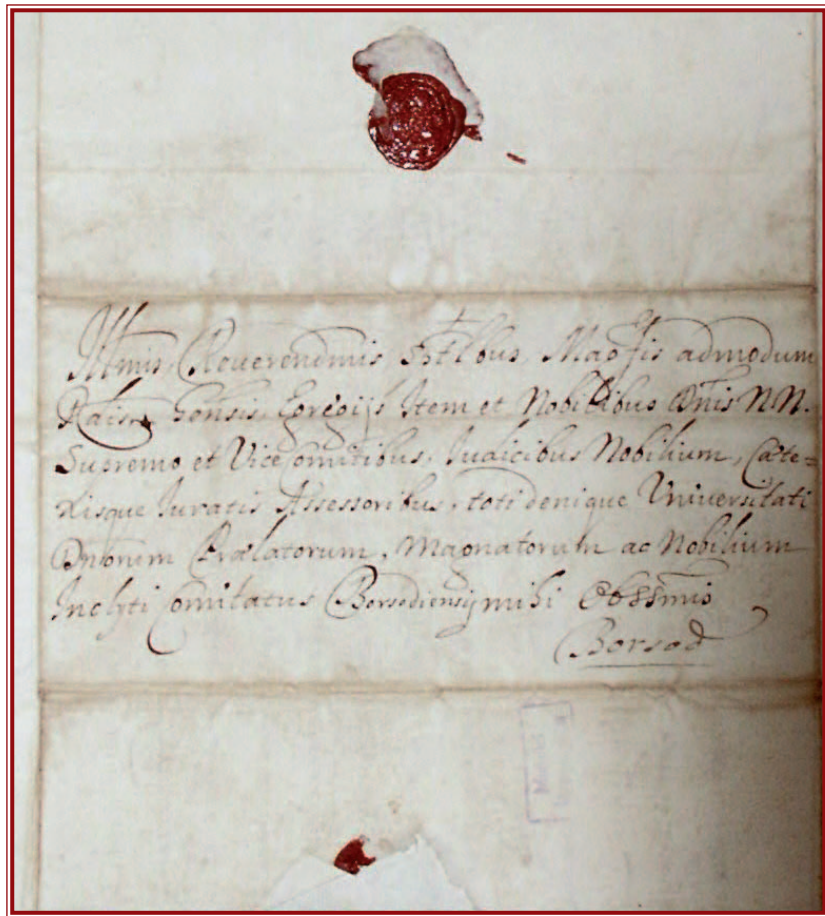 Illmis, Reverendmis Sptlbus, Magfis admodum
Rdis Gensis Egregijs Item et Nobilibus Dnis NN.
Supremo et Vice Comitibus, Iudicibus Nobilium, Cæte=
risque Iuratis Assessoribus, toti denique Universitati
Dnorum Prælatorum, Magnatorum ac Nobilium
Inclyti Comitatus Borsodiensis mihi Obssmio
Borsod